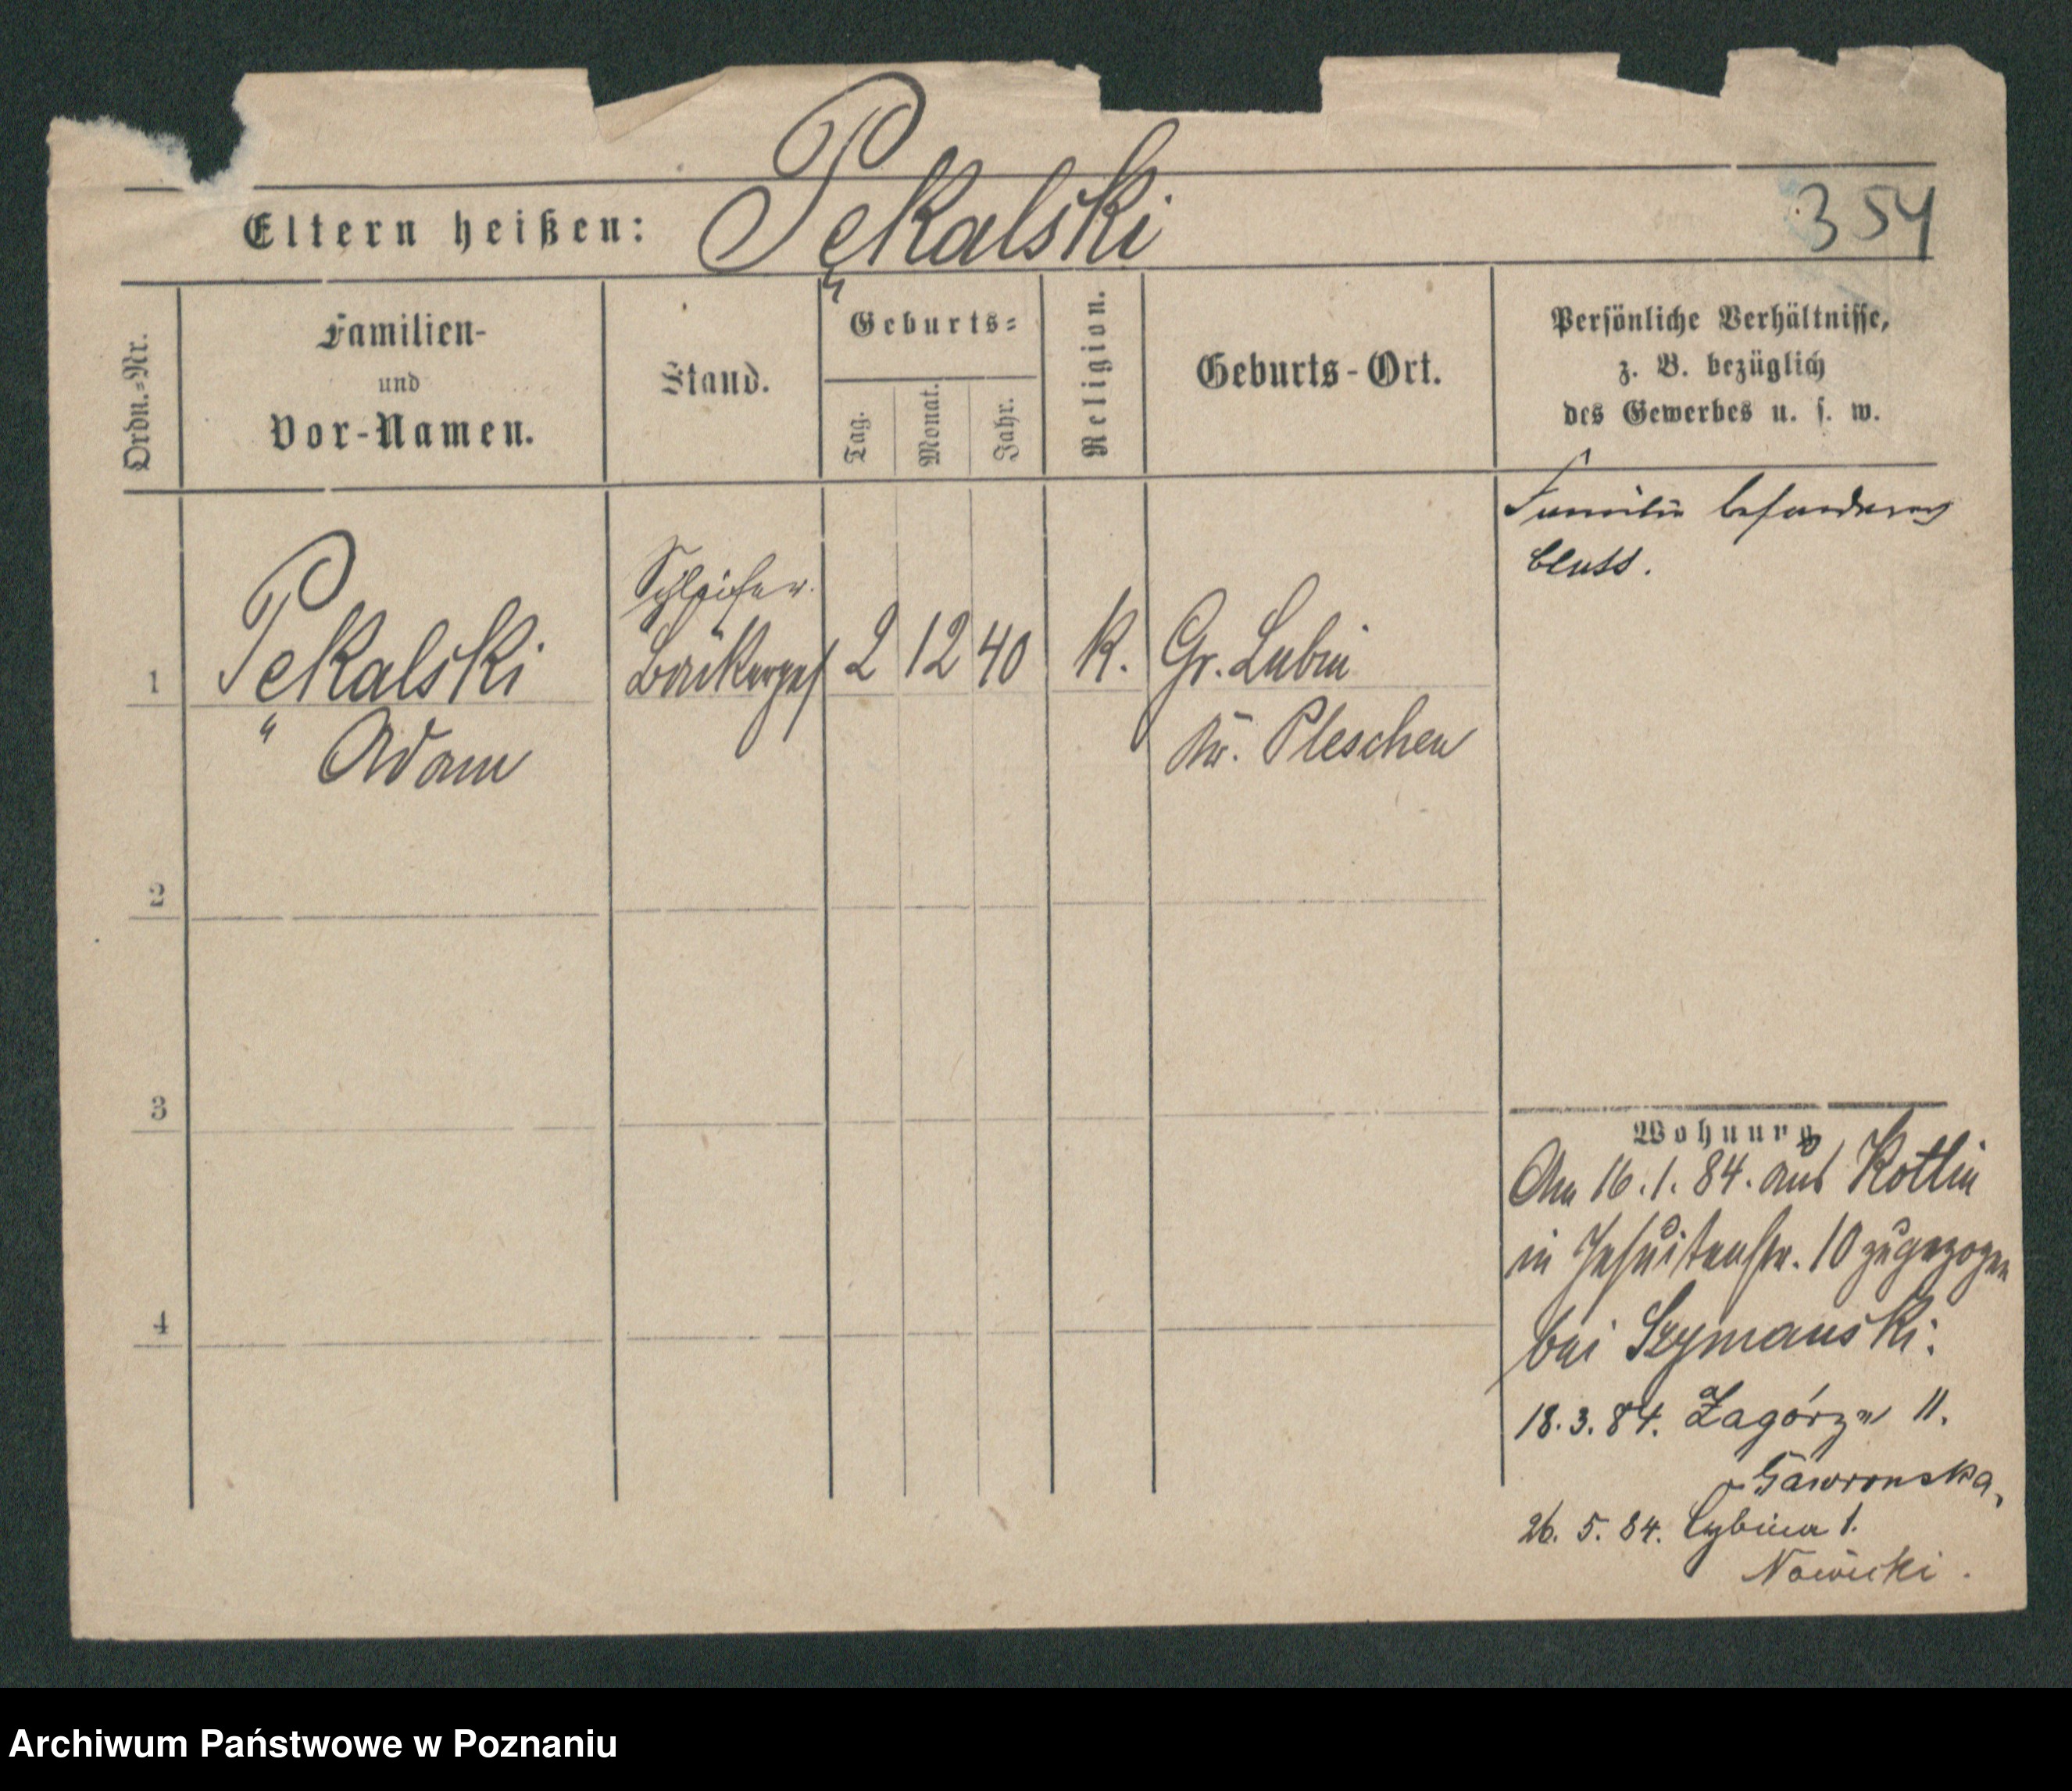 Eltern heißen: Pękalski
354
Ordn.=Nr.
Familien-
und
Vor-Namen.
Stand.
Geburts=
Tag.
Monat.
Jahr.
Religion.
Geburts-Ort.
Persönliche Verhältnisse,
z. B. bezüglich
des Gewerbes u. s. w.
Familie besonderes
Schleifer.
1 Pekalski 2 12 40 k. Gr. Lubin
" Adam Kr. Pleschen
2
3
4
Wohnung
Am 16.1.84. aus Kotlin
in Jesuitenstr. 10 zugezogen
bei Szymanski.
18.3.84. Zagórze 11.
Gawronska,
26.5.84. Cybina 1.
Nowicki.
Archiwum Państwowe w Poznaniu